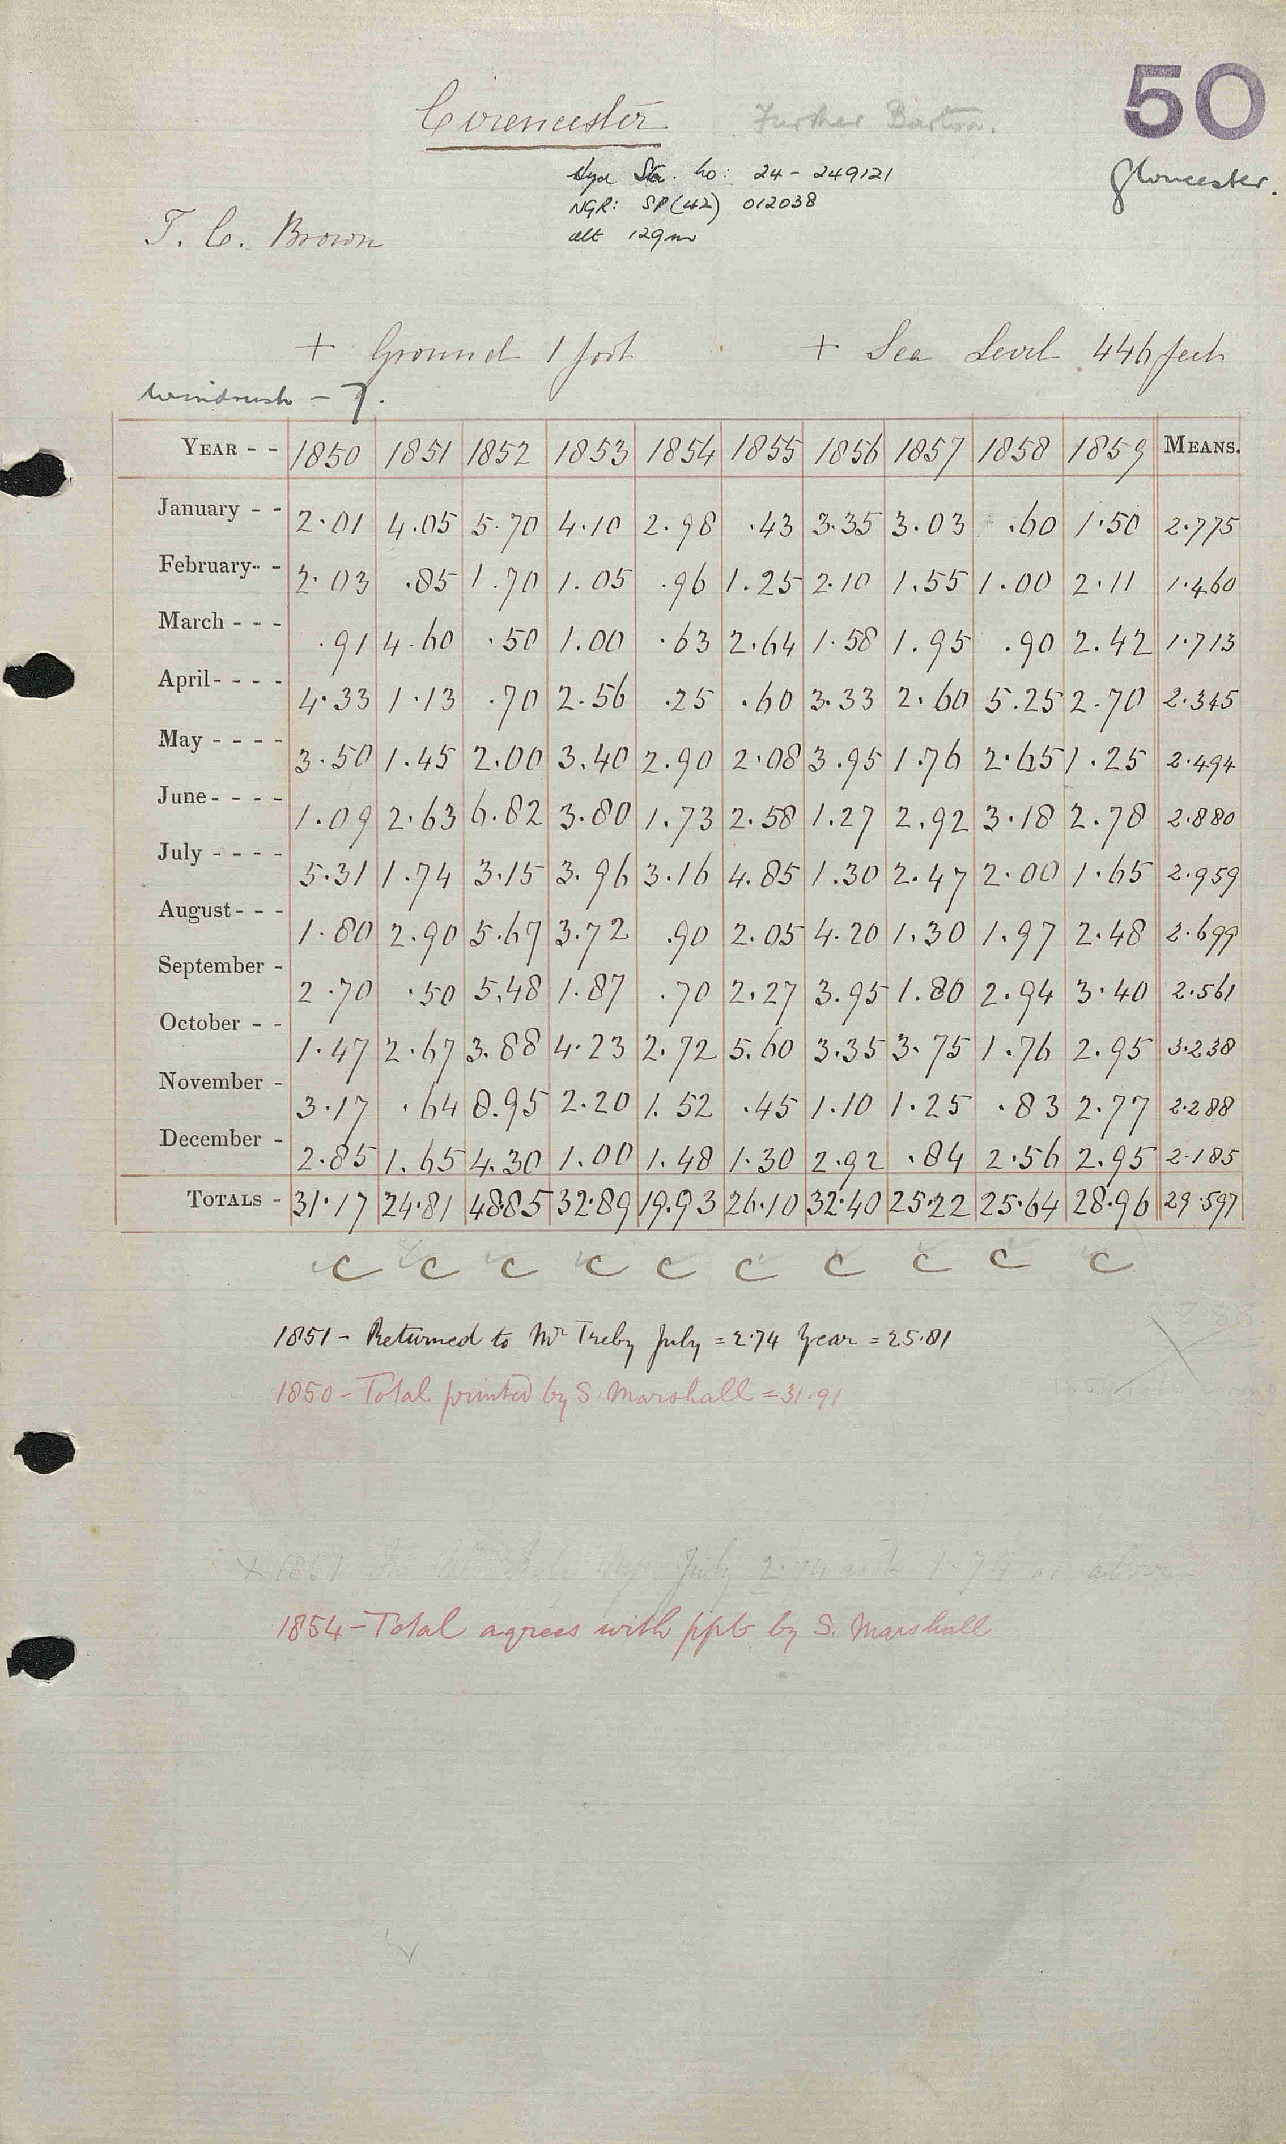 50
Cirencester Further Barton.
Gloucester.
Hyd Sta. No: 24 - 249121
NGR: SP(42) 012038
alt 129m
T. C. Brown
+ Ground 1 foot + Sea Level 446 feet
Windrush - 7.
YEAR - - 1850 1851 1852 1853 1854 1855 1856 1857 1858 1859 MEANS.
January - - 2.01 4.05 5.70 4.10 2.98 .43 3.35 3.03 .60 1.50 2.775
February - - 2.03 .85 1.70 1.05 .96 1.25 2.10 1.55 1.00 2.11 1.460
March - - - .91 4.60 .50 1.00 .63 2.64 1.58 1.95 .90 2.42 1.713
April - - - - 4.33 1.13 .70 2.56 .25 .60 3.33 2.60 5.25 2.70 2.345
May - - - - 3.50 1.45 2.00 3.40 2.90 2.08 3.95 1.76 2.65 1.25 2.494
June - - - - 1.09 2.63 6.82 3.80 1.73 2.58 1.27 2.92 3.18 2.78 2.880
July - - - - 5.31 1.74 3.15 3.96 3.16 4.85 1.30 2.47 2.00 1.65 2.959
August - - - 1.80 2.90 5.67 3.72 .90 2.05 4.20 1.30 1.97 2.48 2.699
September - 2.70 .50 5.48 1.87 .70 2.27 3.95 1.80 2.94 3.40 2.561
October - - 1.47 2.67 3.88 4.23 2.72 5.60 3.35 3.75 1.76 2.95 3.238
November - 3.17 .64 8.95 2.20 1.52 .45 1.10 1.25 .83 2.77 2.288
December - 2.85 1.65 4.30 1.00 1.48 1.30 2.92 .84 2.56 2.95 2.185
TOTALS - 31.17 24.81 48.85 32.89 19.93 26.10 32.40 25.22 25.64 28.96 29.597
C C C C C C C C C C
1851 - Returned to Mr Treby July = 2.74 Year = 25.81
1850 - Total printed by S. Marshall = 31.91
+ 1851 July 2.74 not 1.74 as above
1854 - Total agrees with ppb by S. Marshall